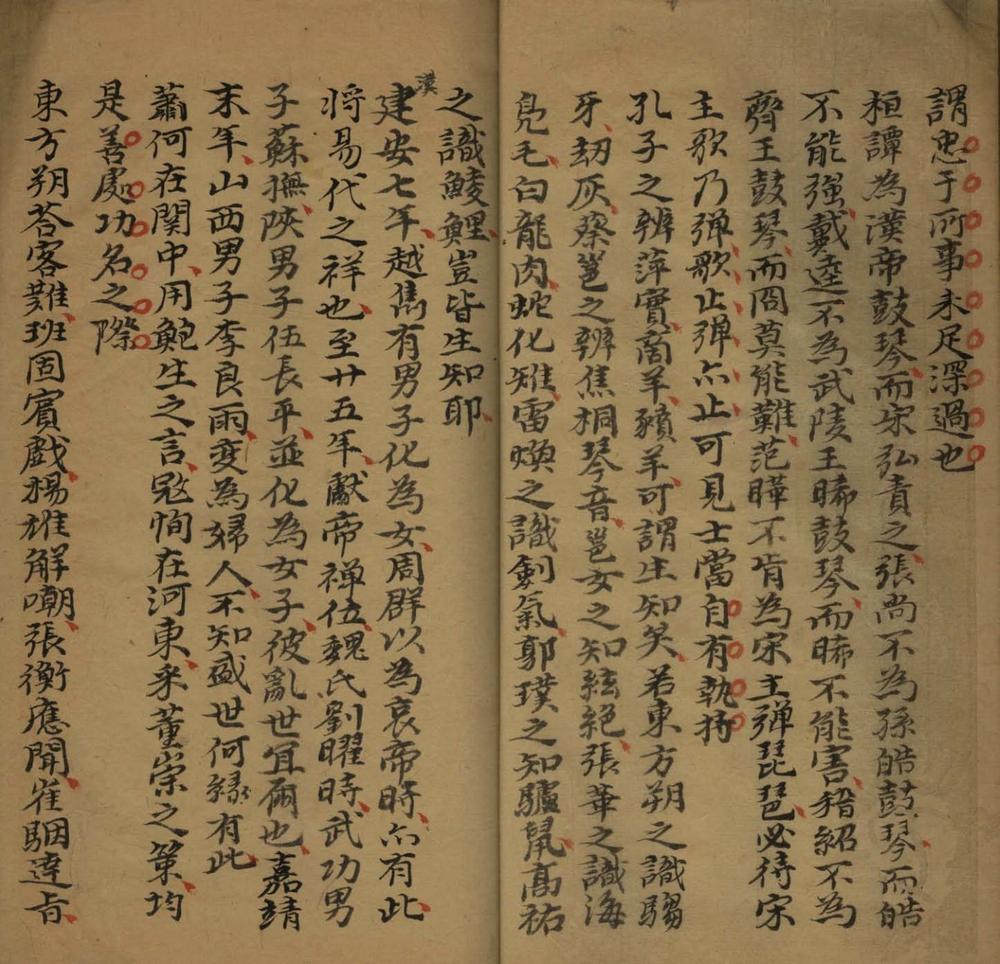 謂忠于所事未足深過也
桓譚為漢帝鼓琴而宋弘責之張尚不為孫皓鼓琴而皓
不能強戴逵不為武陵王晞鼓琴而晞不能害嵇紹不為
齊王鼓琴而冏莫能難范曄不肯為宋主弹琵琶必待宋
主歌乃弹歌止弹亦止可見士當自有執持
孔子之辨萍實商羊羵羊可謂生知矣若東方朔之識騶
牙劫灰蔡邕之辨焦桐琴音邕女之知絃絕張華之識海
鳧毛白龍肉蛇化雉雷煥之識劍氣郭璞之知驢鼠高祐
之識鯪鯉豈皆生知耶
漢建安七年越雋有男子化為女周群以為哀帝時亦有此
将易代之祥也至廿五年獻帝禅位魏氏劉曜時武功男
子蘇撫陝男子伍長平並化為女子彼亂世宜爾也嘉靖
末年山西男子李良雨变為婦人不知盛世何緣有此
蕭何在関中用鮑生之言寇恂在河東采董崇之策均
是善處功名之際
東方朔荅客難班固賓戲楊雄解嘲張衡應閒崔駰達旨